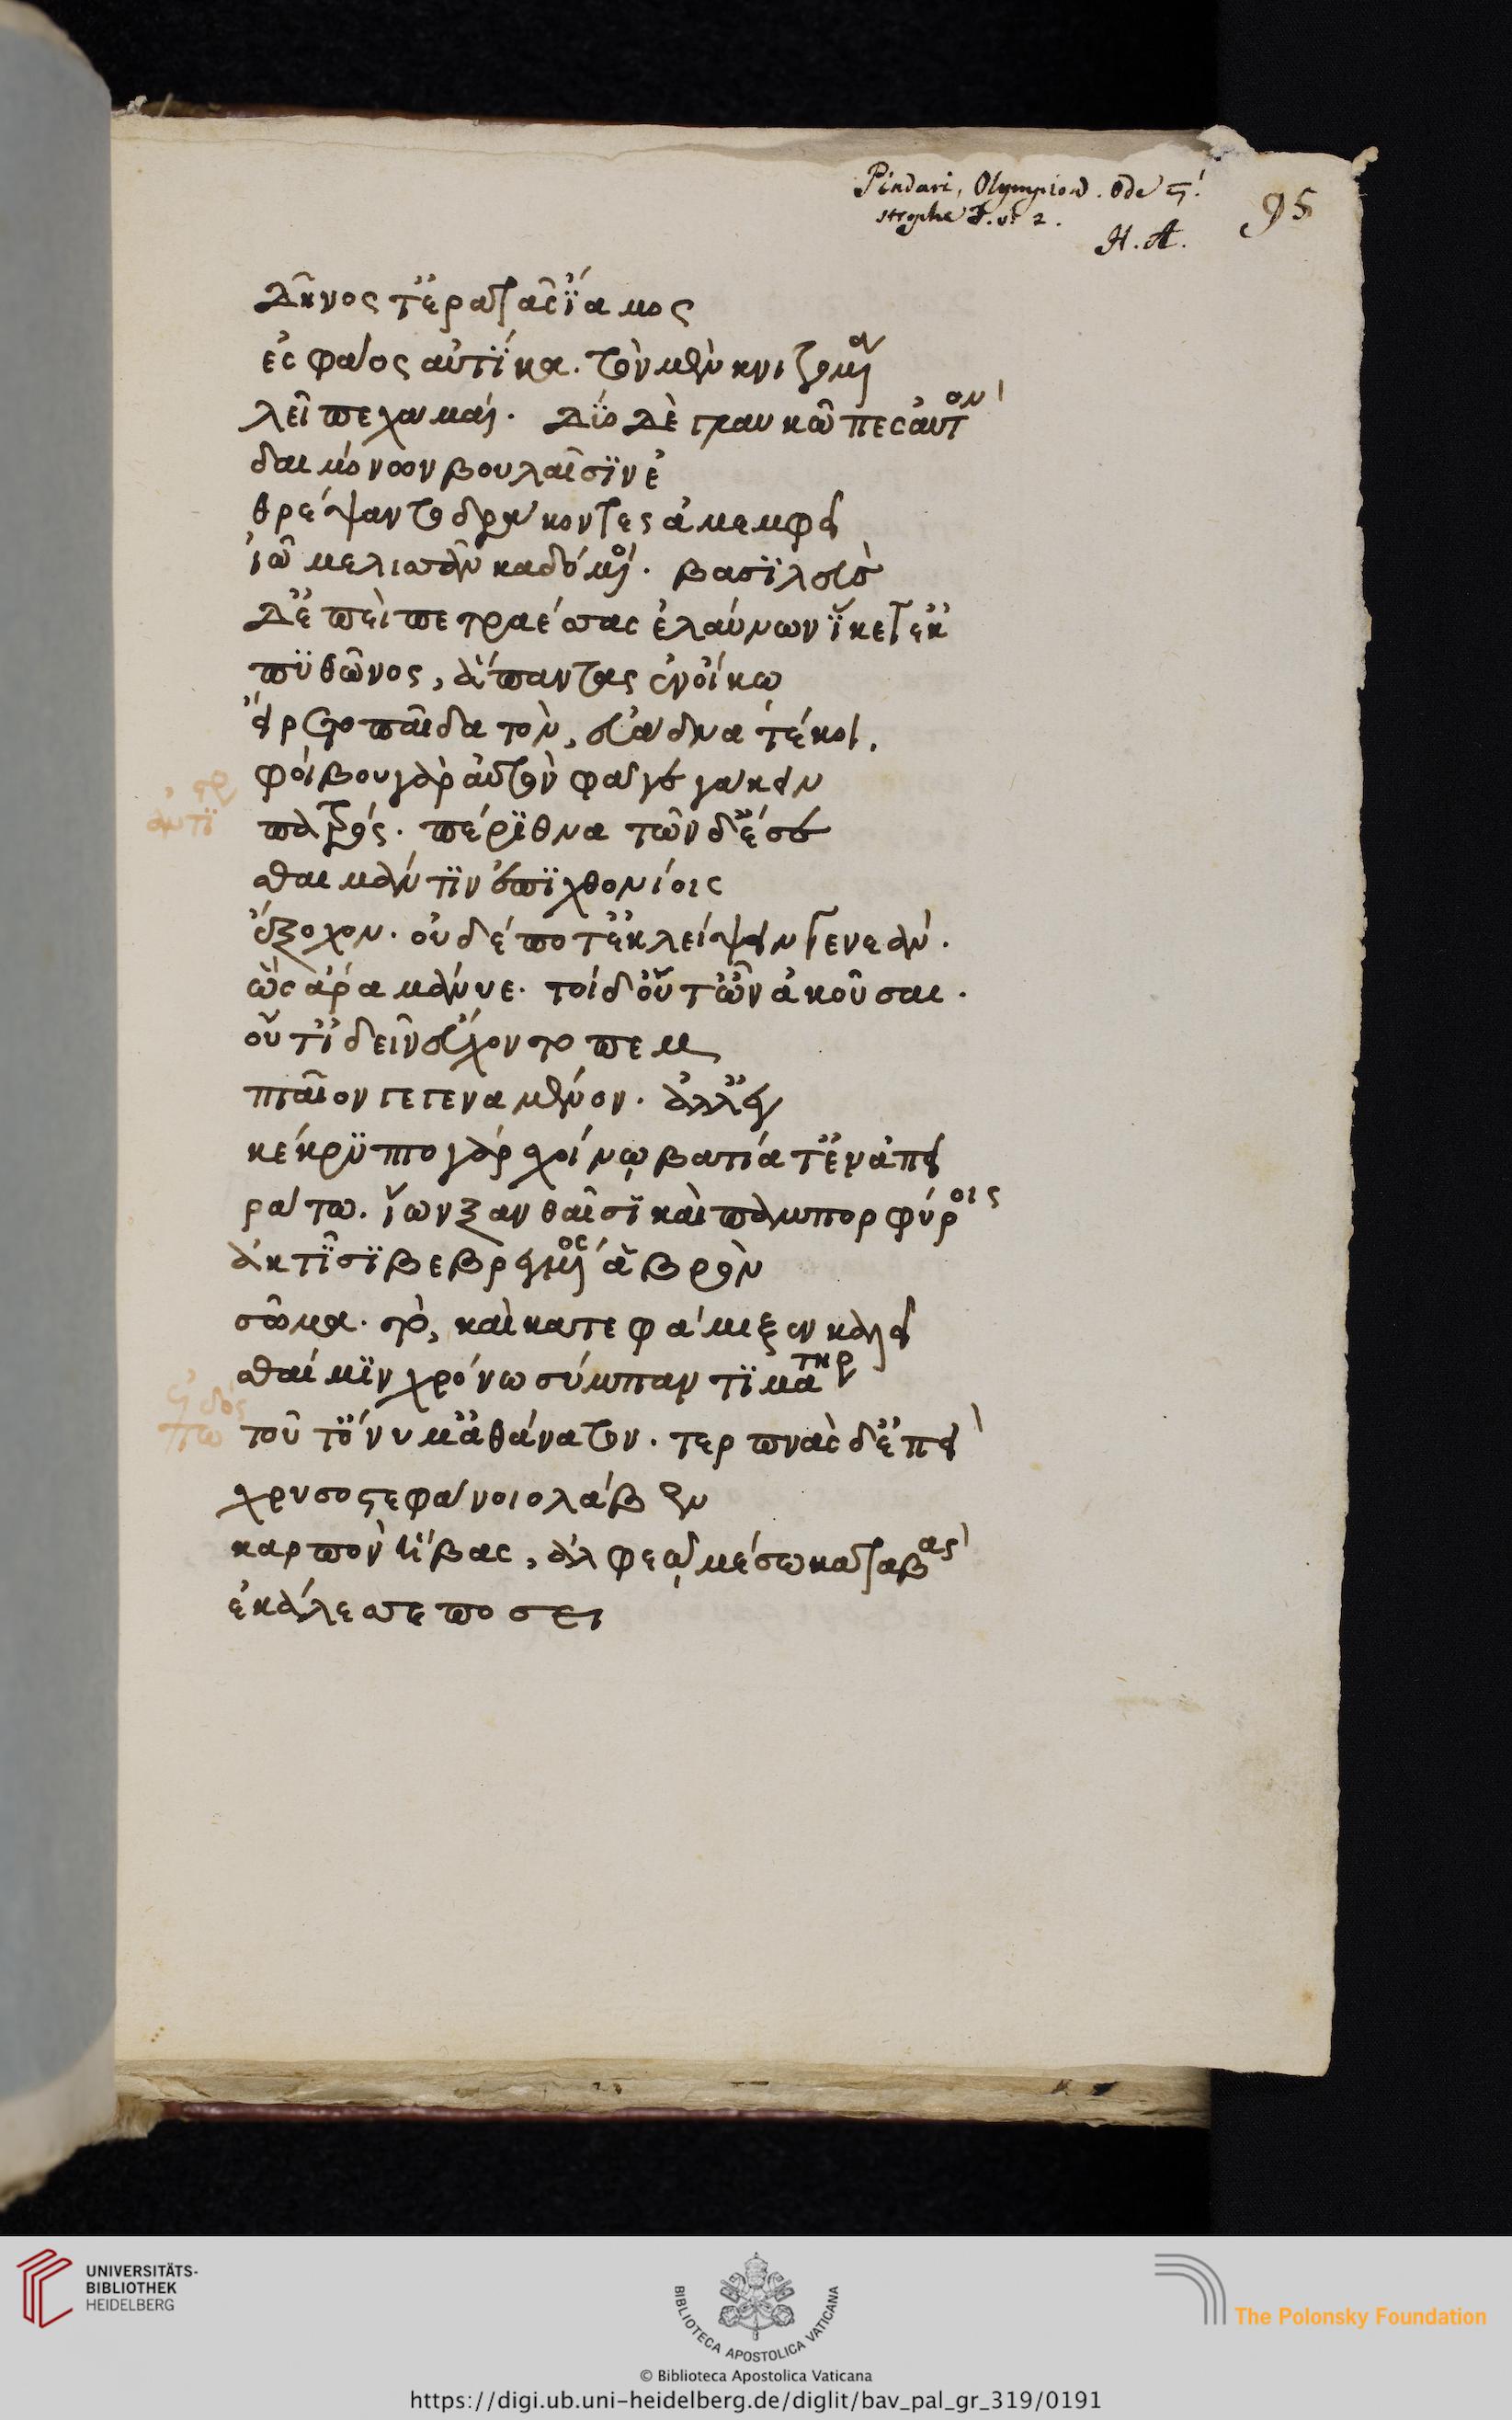 Pindari, Olympion. Ode ς'.
strophe Γ. v. 2.
H. A.
95
δῖνός τ' ἐρατᾶς ἴαμος
ἐς φάος αὐτίκα. τὸν μὲν κνιζομένα
λεῖπε χαμαί. δύο δὲ γλαυκῶπες αὐτὸν
δαιμόνων βουλαῖσιν ἐ
θρέψαντο δράκοντες ἀμεμφεῖ
ἰῷ μελισσᾶν καδόμενοι. βασιλεὺς
δ' ἐπεὶ πετραέσσας ἐλαύνων ἵκετ' ἐκ
πυθῶνος, ἅπαντας ἐν οἴκω
εἴρετο παῖδα τὸν, εὐάδνα τέκοι.
φοίβου γὰρ αὐτὸν φᾶ γεγάκειν
πατρός. πέρι θνατῶν δ' ἔσε
σθαι μάντιν ἐπιχθονίοις
ἔξοχον. οὐδέ ποτ' ἐκλείψειν γενεάν.
ὣς ἄρα μάνυε. τοὶ δ' οὔτ' ὦν ἀκοῦσαι.
οὔτ' ἰδεῖν εὔχοντο πεμ
πταῖον γεγεναμένον. ἀλλ' ἐν
κέκρυπτο γὰρ σχοίνῳ βατία τ' ἐν ἀπει
ράτω. ἴων ξανθαῖσι καὶ παμπορφύροις
ἀκτῖσι βεβρεγμένος ἁβρὸν
σῶμα. τὸ, καὶ κατεφάμιξεν καλεῖ
σθαί μιν χρόνω σύμπαντι μάτηρ
τοῦτ' ὄνυμ' ἀθάνατον. τερπνᾶς δ' ἐπεὶ
χρυσοστεφάνοιο λάβεν
καρπὸν ἥβας, ἀλφεῷ μέσω καταβὰς
ἐκάλεσσε ποσει
στρ
ἀντι
ἐπωδός
UNIVERSITÄTS-
BIBLIOTHEK
HEIDELBERG
BIBLIOTECA APOSTOLICA VATICANA
The Polonsky Foundation
© Biblioteca Apostolica Vaticana
https://digi.ub.uni-heidelberg.de/diglit/bav_pal_gr_319/0191